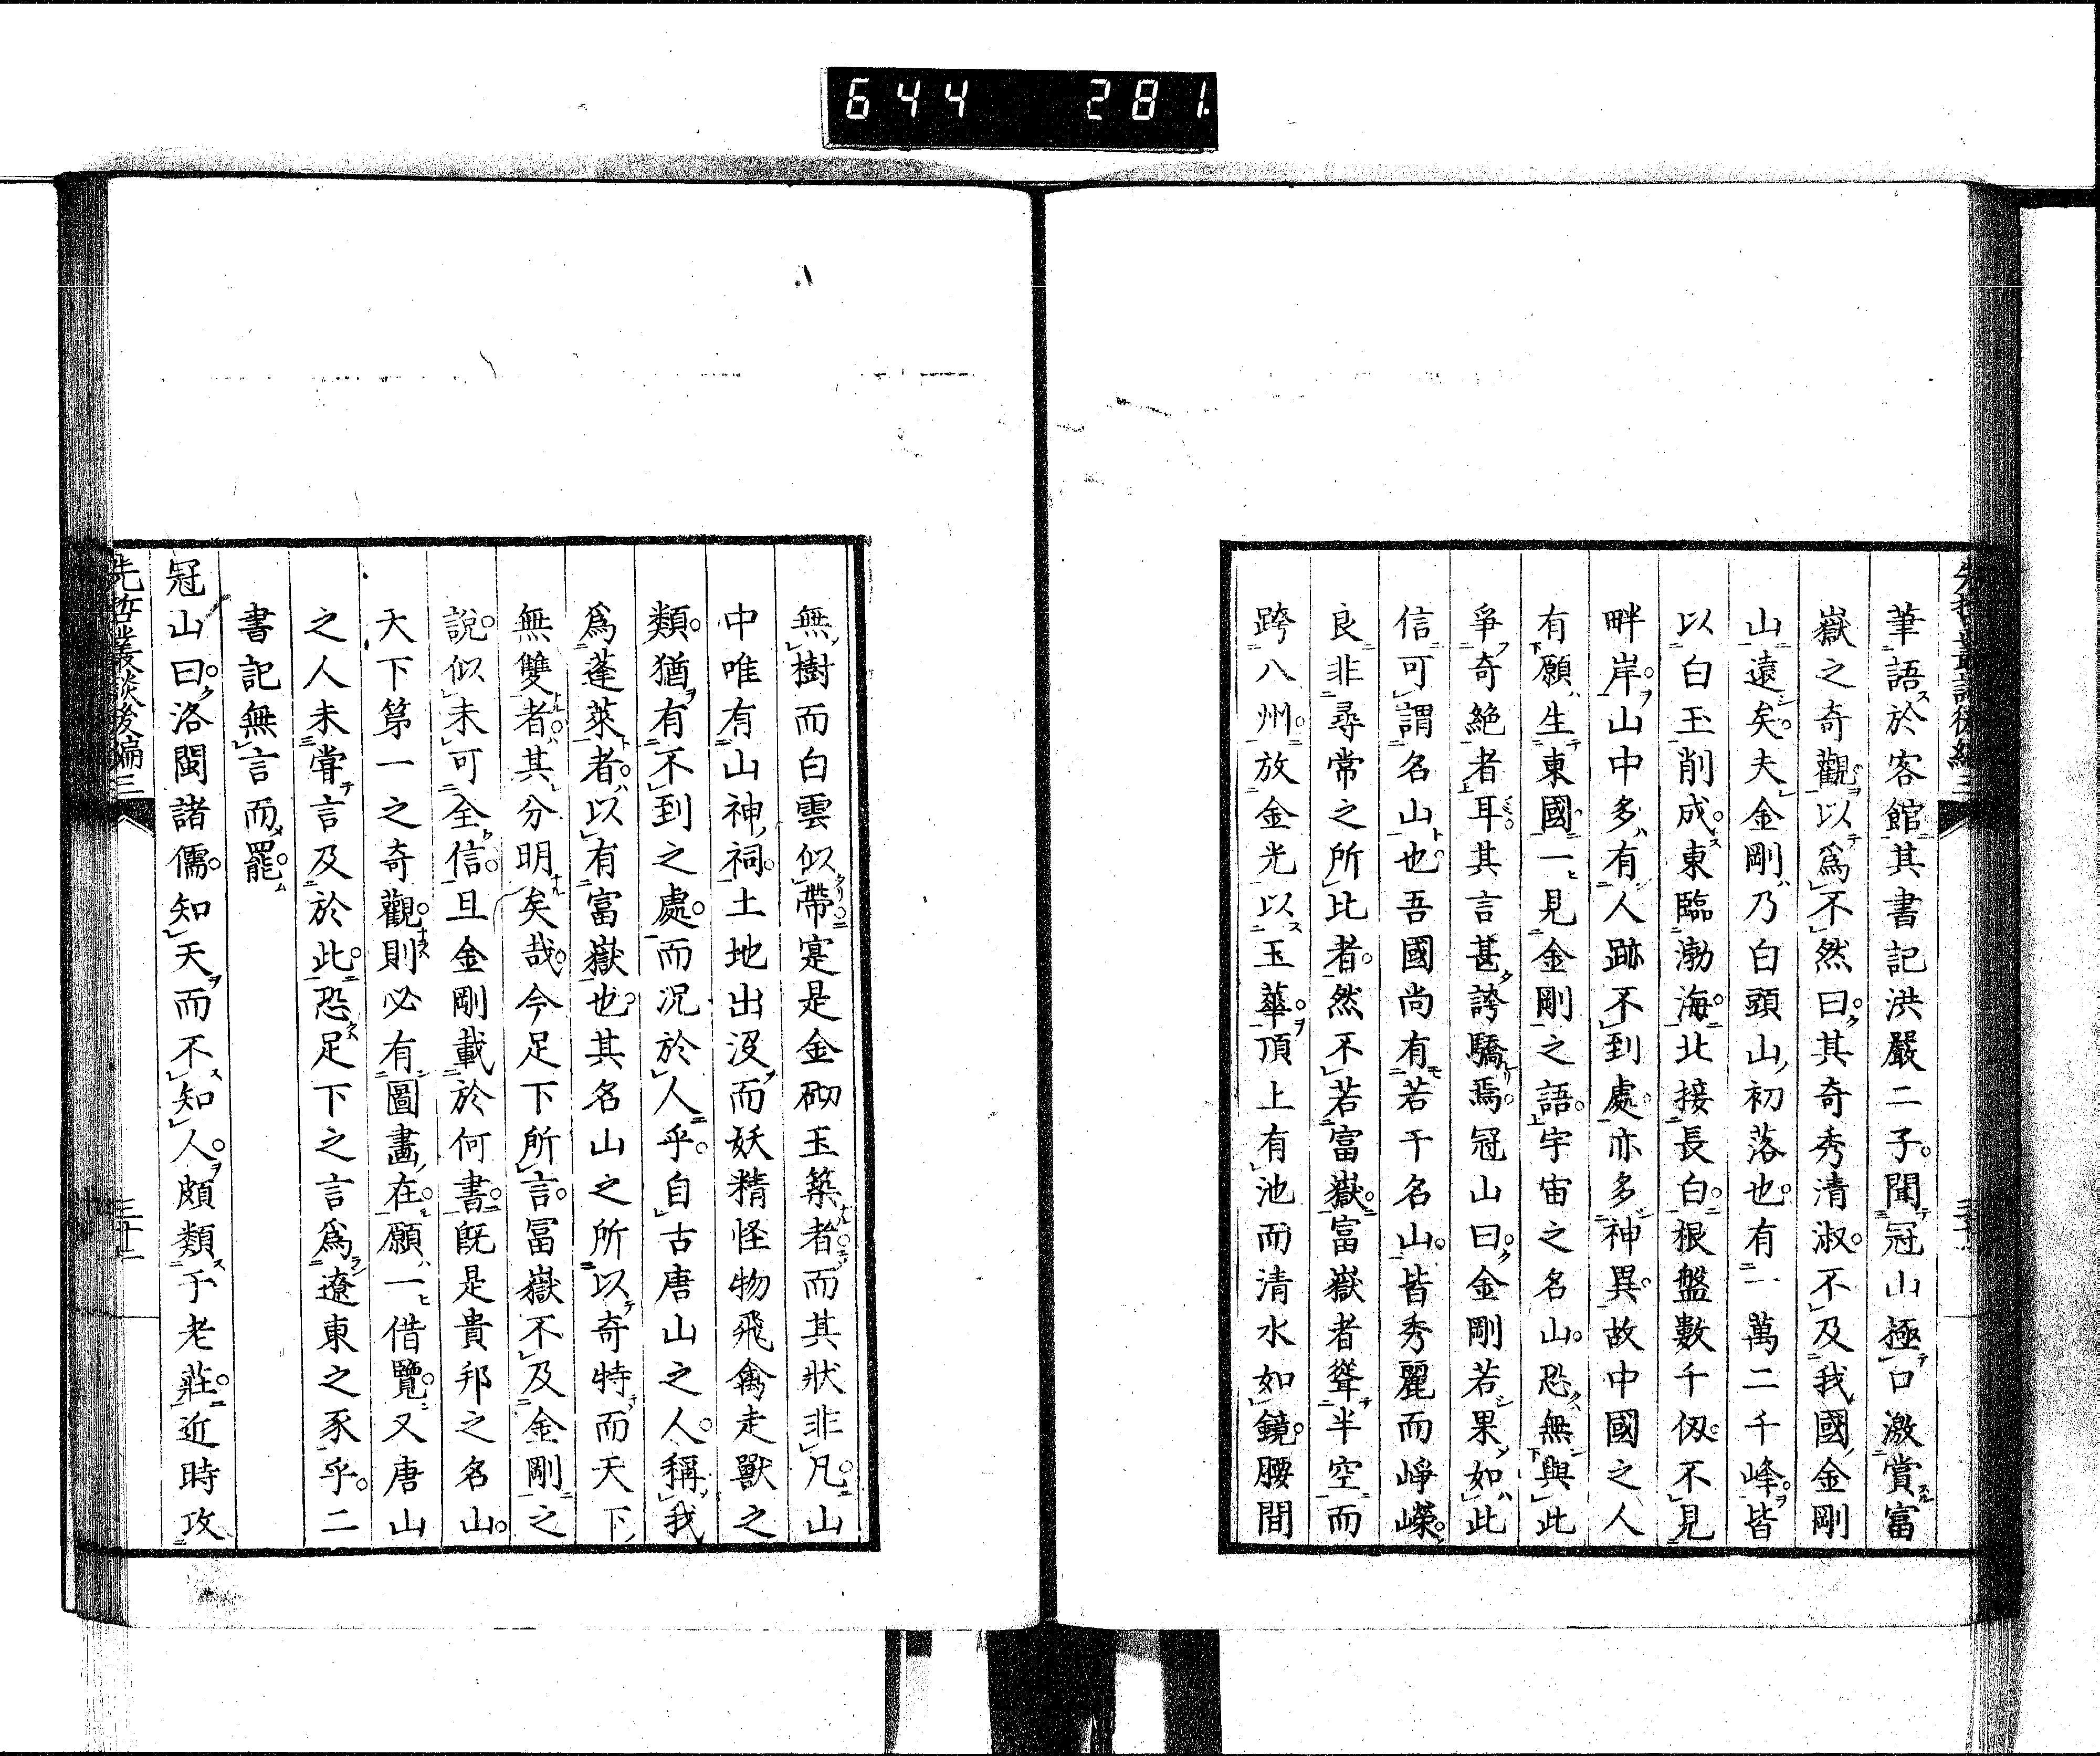 644 281
先哲叢談後編三
筆語於客館其書記洪嚴二子聞冠山極口激賞富
嶽之奇觀以爲不然曰其奇秀清淑不及我國金剛
山遠矣夫金剛乃白頭山初落也有一萬二千峰皆
以白玉削成東臨渤海北接長白根盤數千仭不見
畔岸山中多有人跡不到處亦多神異故中國之人
有願生東國一見金剛之語宇宙之名山恐無與此
爭奇絶者耳其言甚誇驕焉冠山曰金剛若果如此
信可謂名山也吾國尚有若干名山皆秀麗而崢嶸
良非尋常之所比者然不若富嶽富嶽者聳半空而
跨八州放金光以玉華頂上有池而清水如鏡腰間
無樹而白雲似帶寔是金砌玉築者而其狀非凡山
中唯有山神祠土地出沒而妖精怪物飛禽走獸之
類猶有不到之處而况於人乎自古唐山之人稱我
爲蓬萊者以有富嶽也其名山之所以奇特而天下
無雙者其分明矣哉今足下所言冨嶽不及金剛之
說似未可全信且金剛載於何書旣是貴邦之名山
天下第一之奇觀則必有圖畵在願一借覽又唐山
之人未甞言及於此恐足下之言爲遼東之豕乎二
書記無言而罷
冠山曰洛閩諸儒知天而不知人頗類于老莊近時攻
先哲叢談後編三